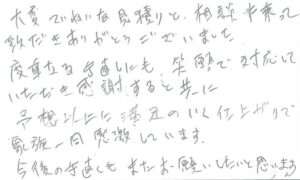 大変ていねいな見積りと、相談に乗って
頂だきありがとうございました。
度重なる手直しにも、笑顔で対応して
いただき感謝すると共に
予想以上に満足のいく仕上がりで
家族一同感激しています。
今後の手直しも またお願いしたいと思います